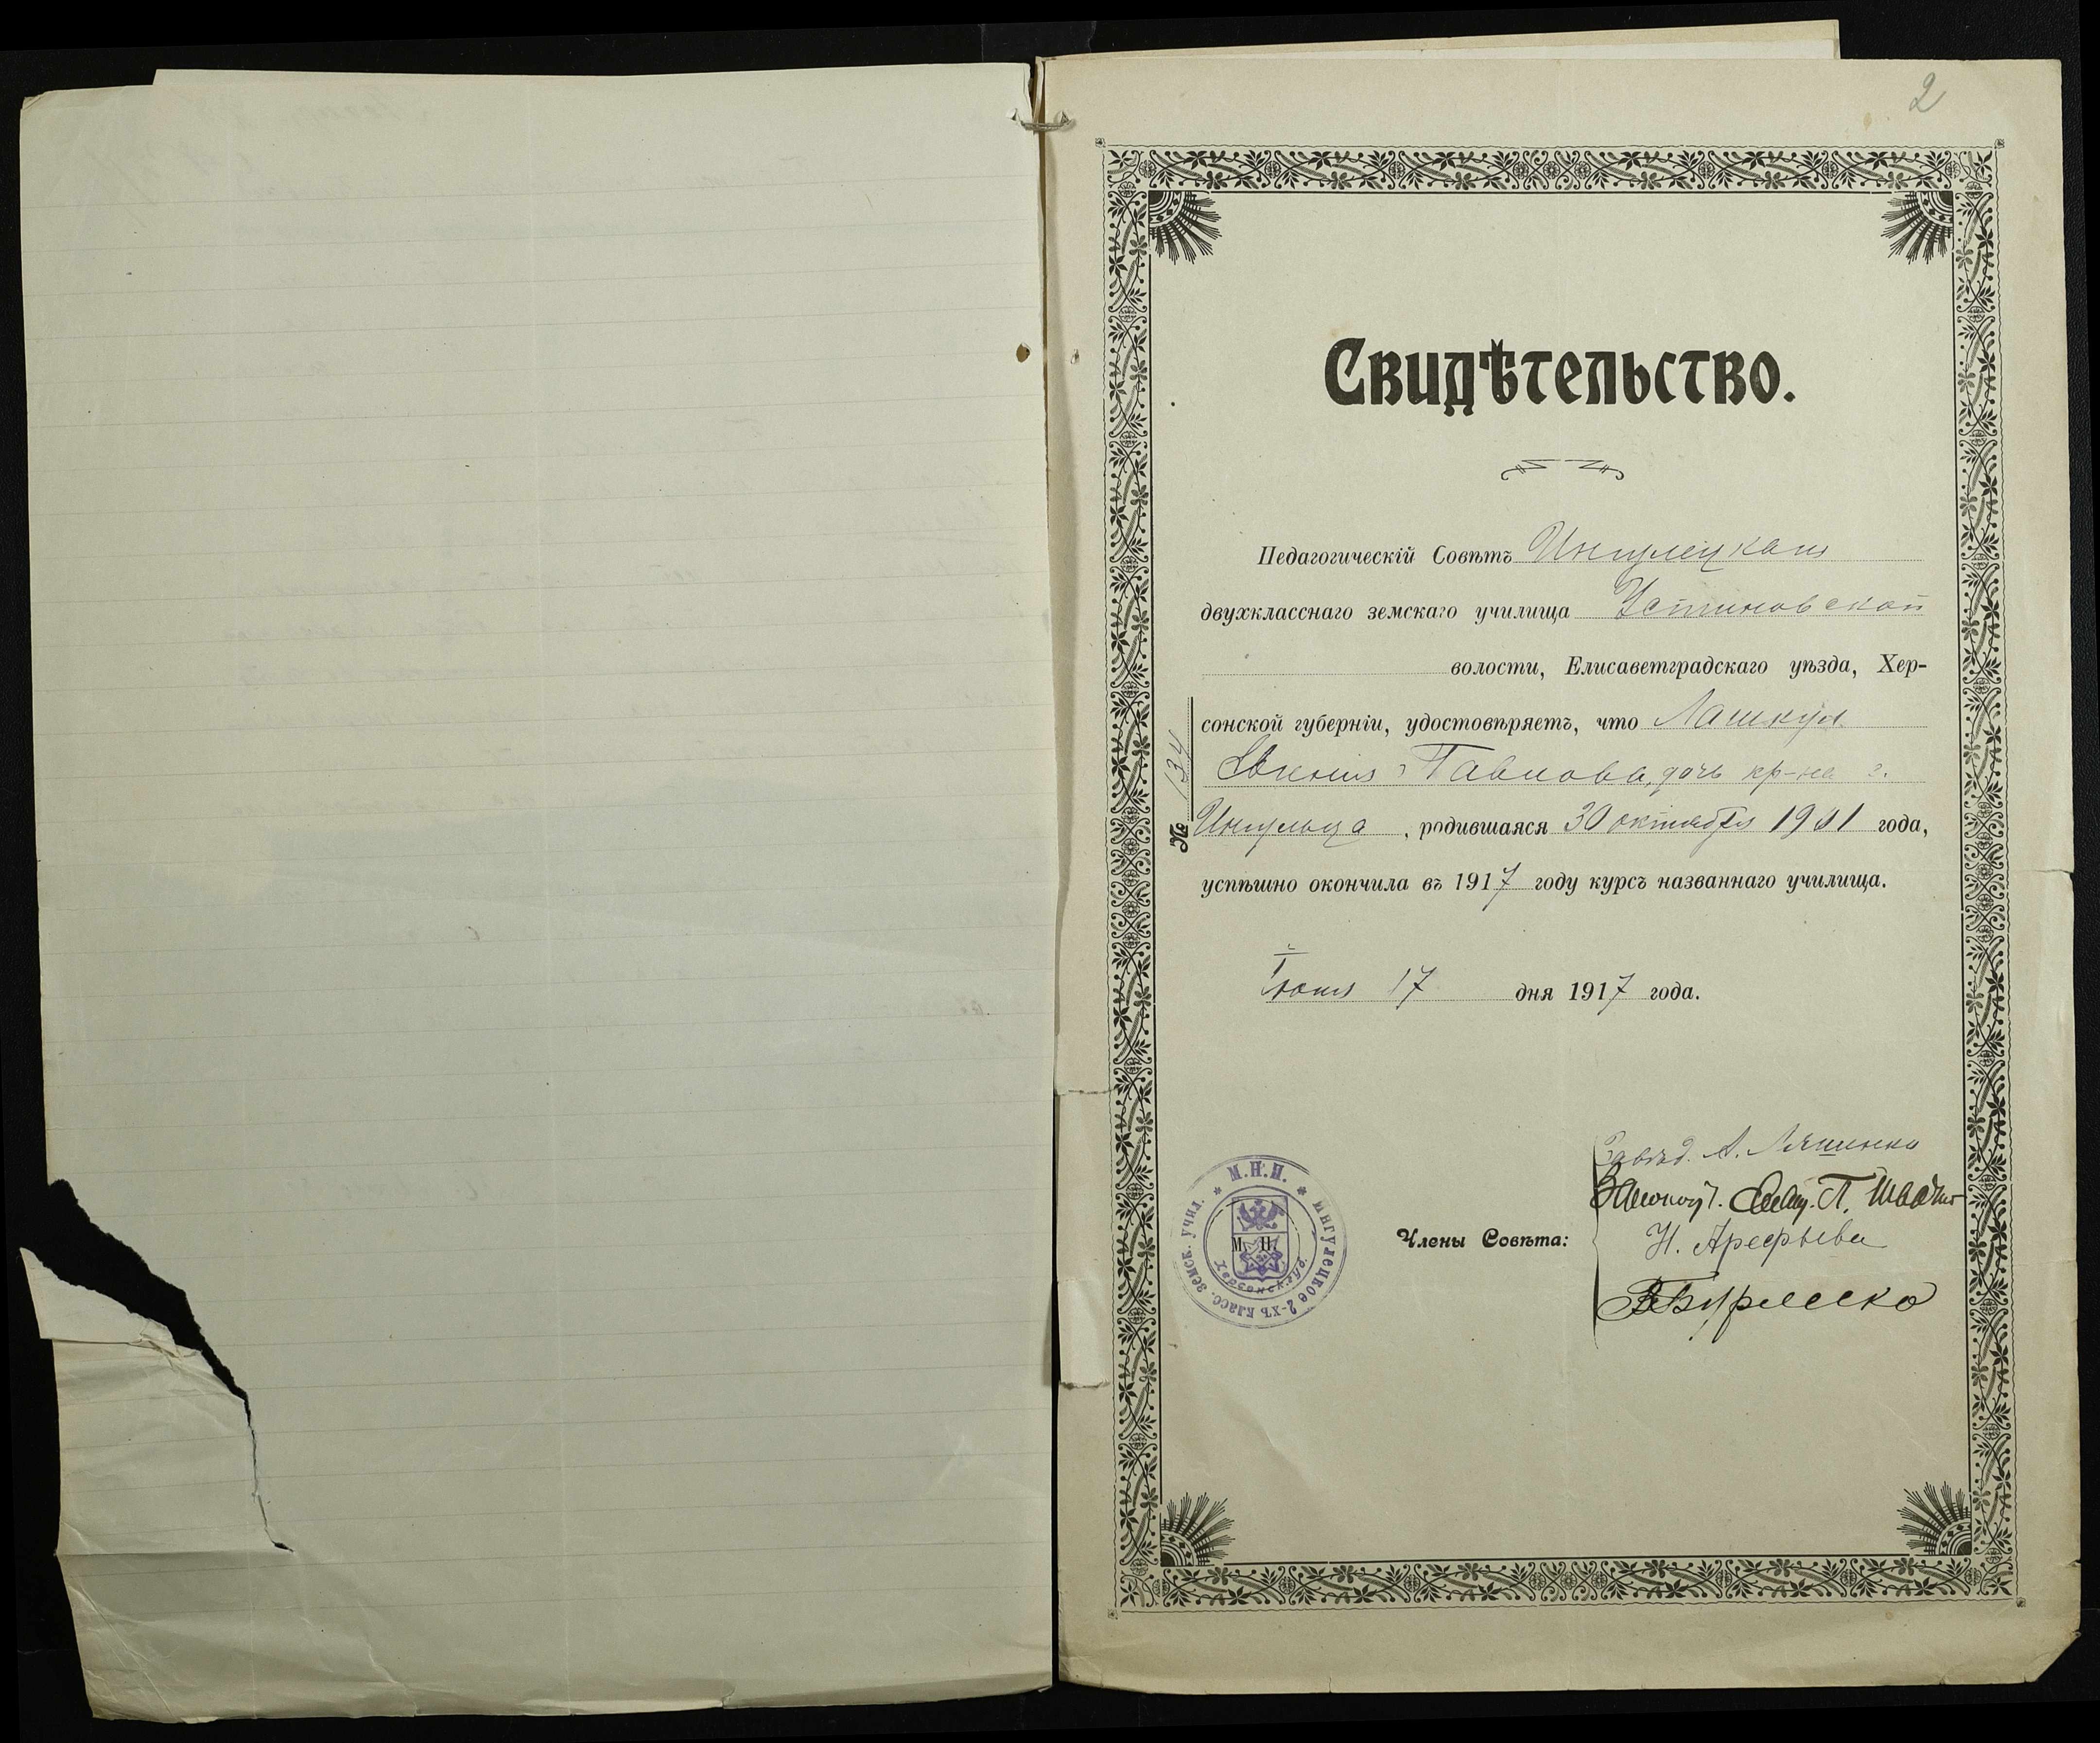 2
Свидѣтельство.
Педагогическій Совѣтъ Ингулецкаго
двухкласснаго земскаго училища Устиновской
волости, Елисаветградскаго уѣзда, Хер-
сонской губерніи, удостовѣряетъ, что Лашкул
Павлова, дочь кр-на с.
Ингульца, родившаяся 30 октября 1901 года,
успѣшно окончила въ 1917 году курсъ названнаго училища.
№ 134
Іюня 17 дня 1917 года.
Завѣд. А.
Законоуч. Свящ. П.
Члены Совѣта:
Н. Арефьева
М. П.
М.Н.П. * Ингулецкое 2-хъ класс. земск. учил. *
Херсонск. губ.